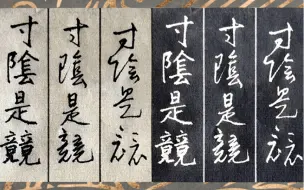 寸陰是競
寸陰是競
寸陰是競
寸陰是競
寸陰是競
寸陰是競